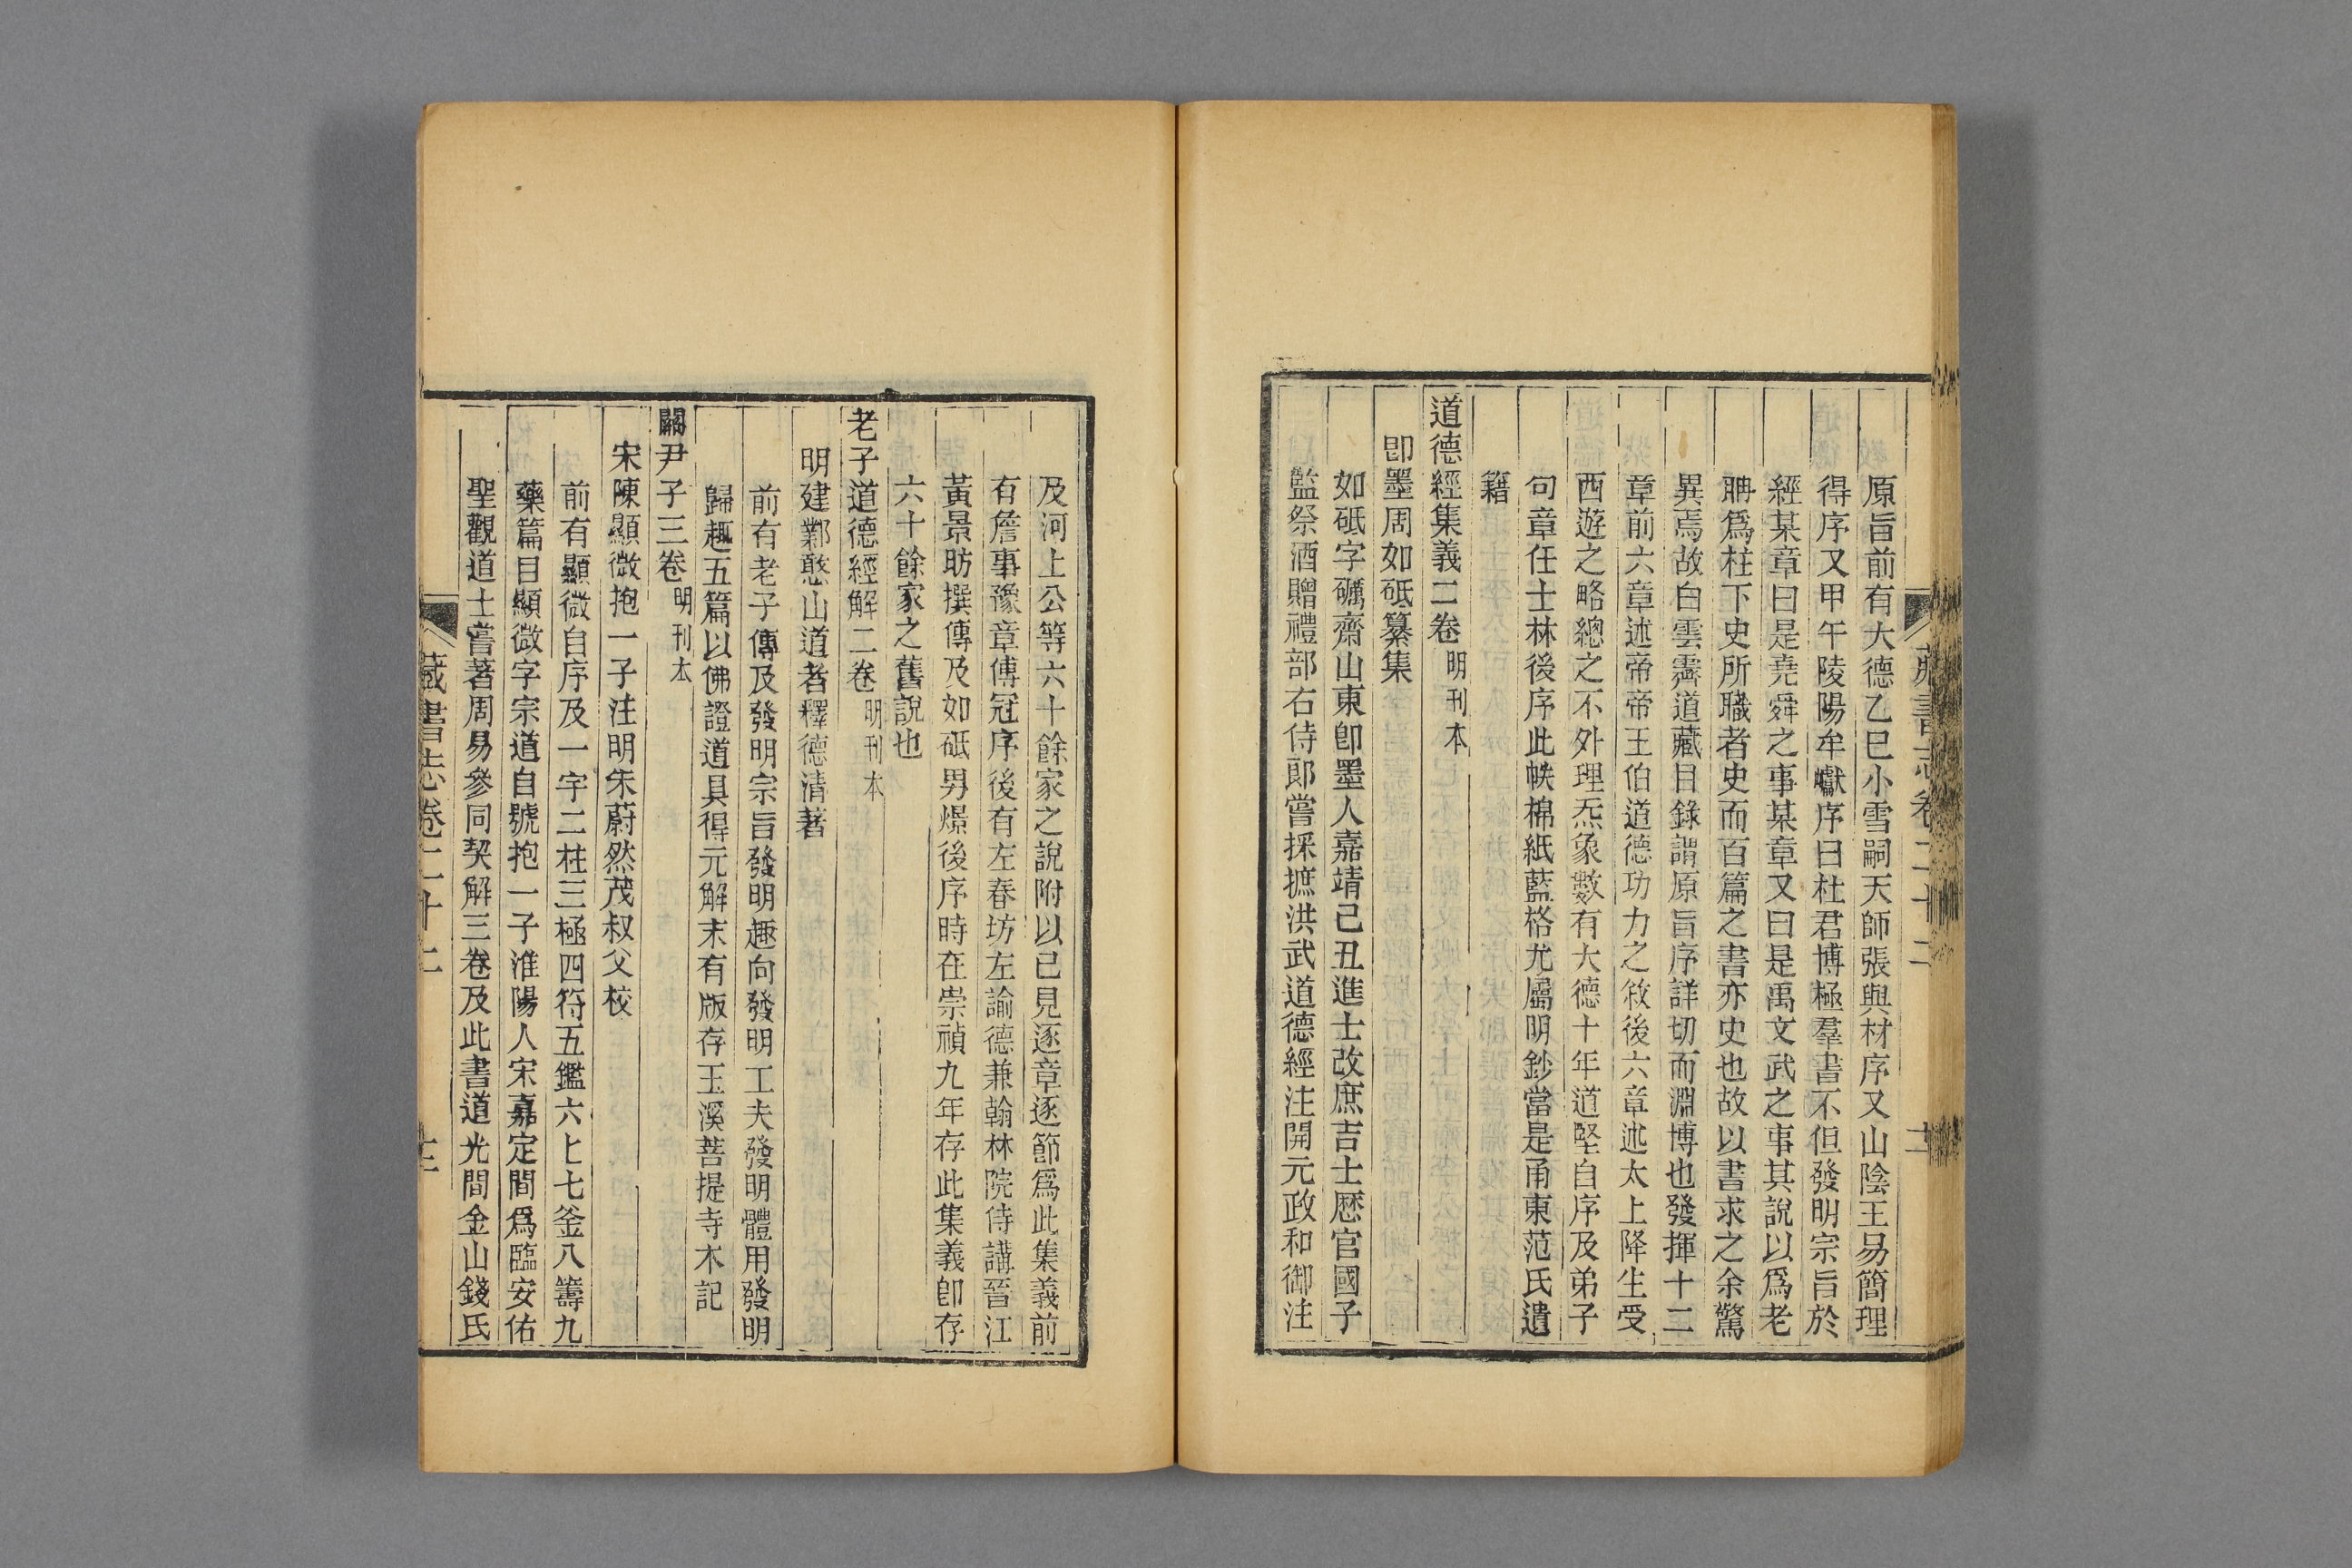 原旨前有大德乙巳小雪嗣天師張與材序又山陰王易簡理
得序又甲午陵陽牟巘序曰杜君博極羣書不但發明宗旨於
經某章曰是堯舜之事某章又曰是禹文武之事其說以爲老
聃爲柱下史所職者史而百篇之書亦史也故以書求之余驚
異焉故白雲霽道藏目錄謂原旨序詳切而淵博也發揮十二
章前六章述帝帝王伯道德功力之敘後六章述太上降生受
西遊之略總之不外理炁象數有大德十年道堅自序及弟子
句章任士林後序此帙棉紙藍格尤屬明鈔當是甬東范氏遺
籍
道德經集義二卷 明刊本
卽墨周如砥纂集
如砥字礪齋山東卽墨人嘉靖己丑進士改庶吉士歷官國子
監祭酒贈禮部右侍郞嘗採摭洪武道德經注開元政和御注
藏書志卷二十二
及河上公等六十餘家之說附以己見逐章逐節爲此集義前
有詹事豫章傅冠序後有左春坊左諭德兼翰林院侍講晉江
黃景昉撰傳及如砥男燝後序時在崇禎九年存此集義卽存
六十餘家之舊說也
老子道德經解二卷 明刊本
明建鄴憨山道者釋德清著
前有老子傳及發明宗旨發明趣向發明工夫發明體用發明
歸趣五篇以佛證道具得元解末有版存玉溪菩提寺木記
關尹子三卷 明刊本
宋陳顯微抱一子注明朱蔚然茂叔父校
前有顯微自序及一宇二柱三極四符五鑑六匕七釜八籌九
藥篇目顯微字宗道自號抱一子淮陽人宋嘉定間爲臨安佑
聖觀道士嘗著周易參同契解三卷及此書道光間金山錢氏
藏書志卷二十二